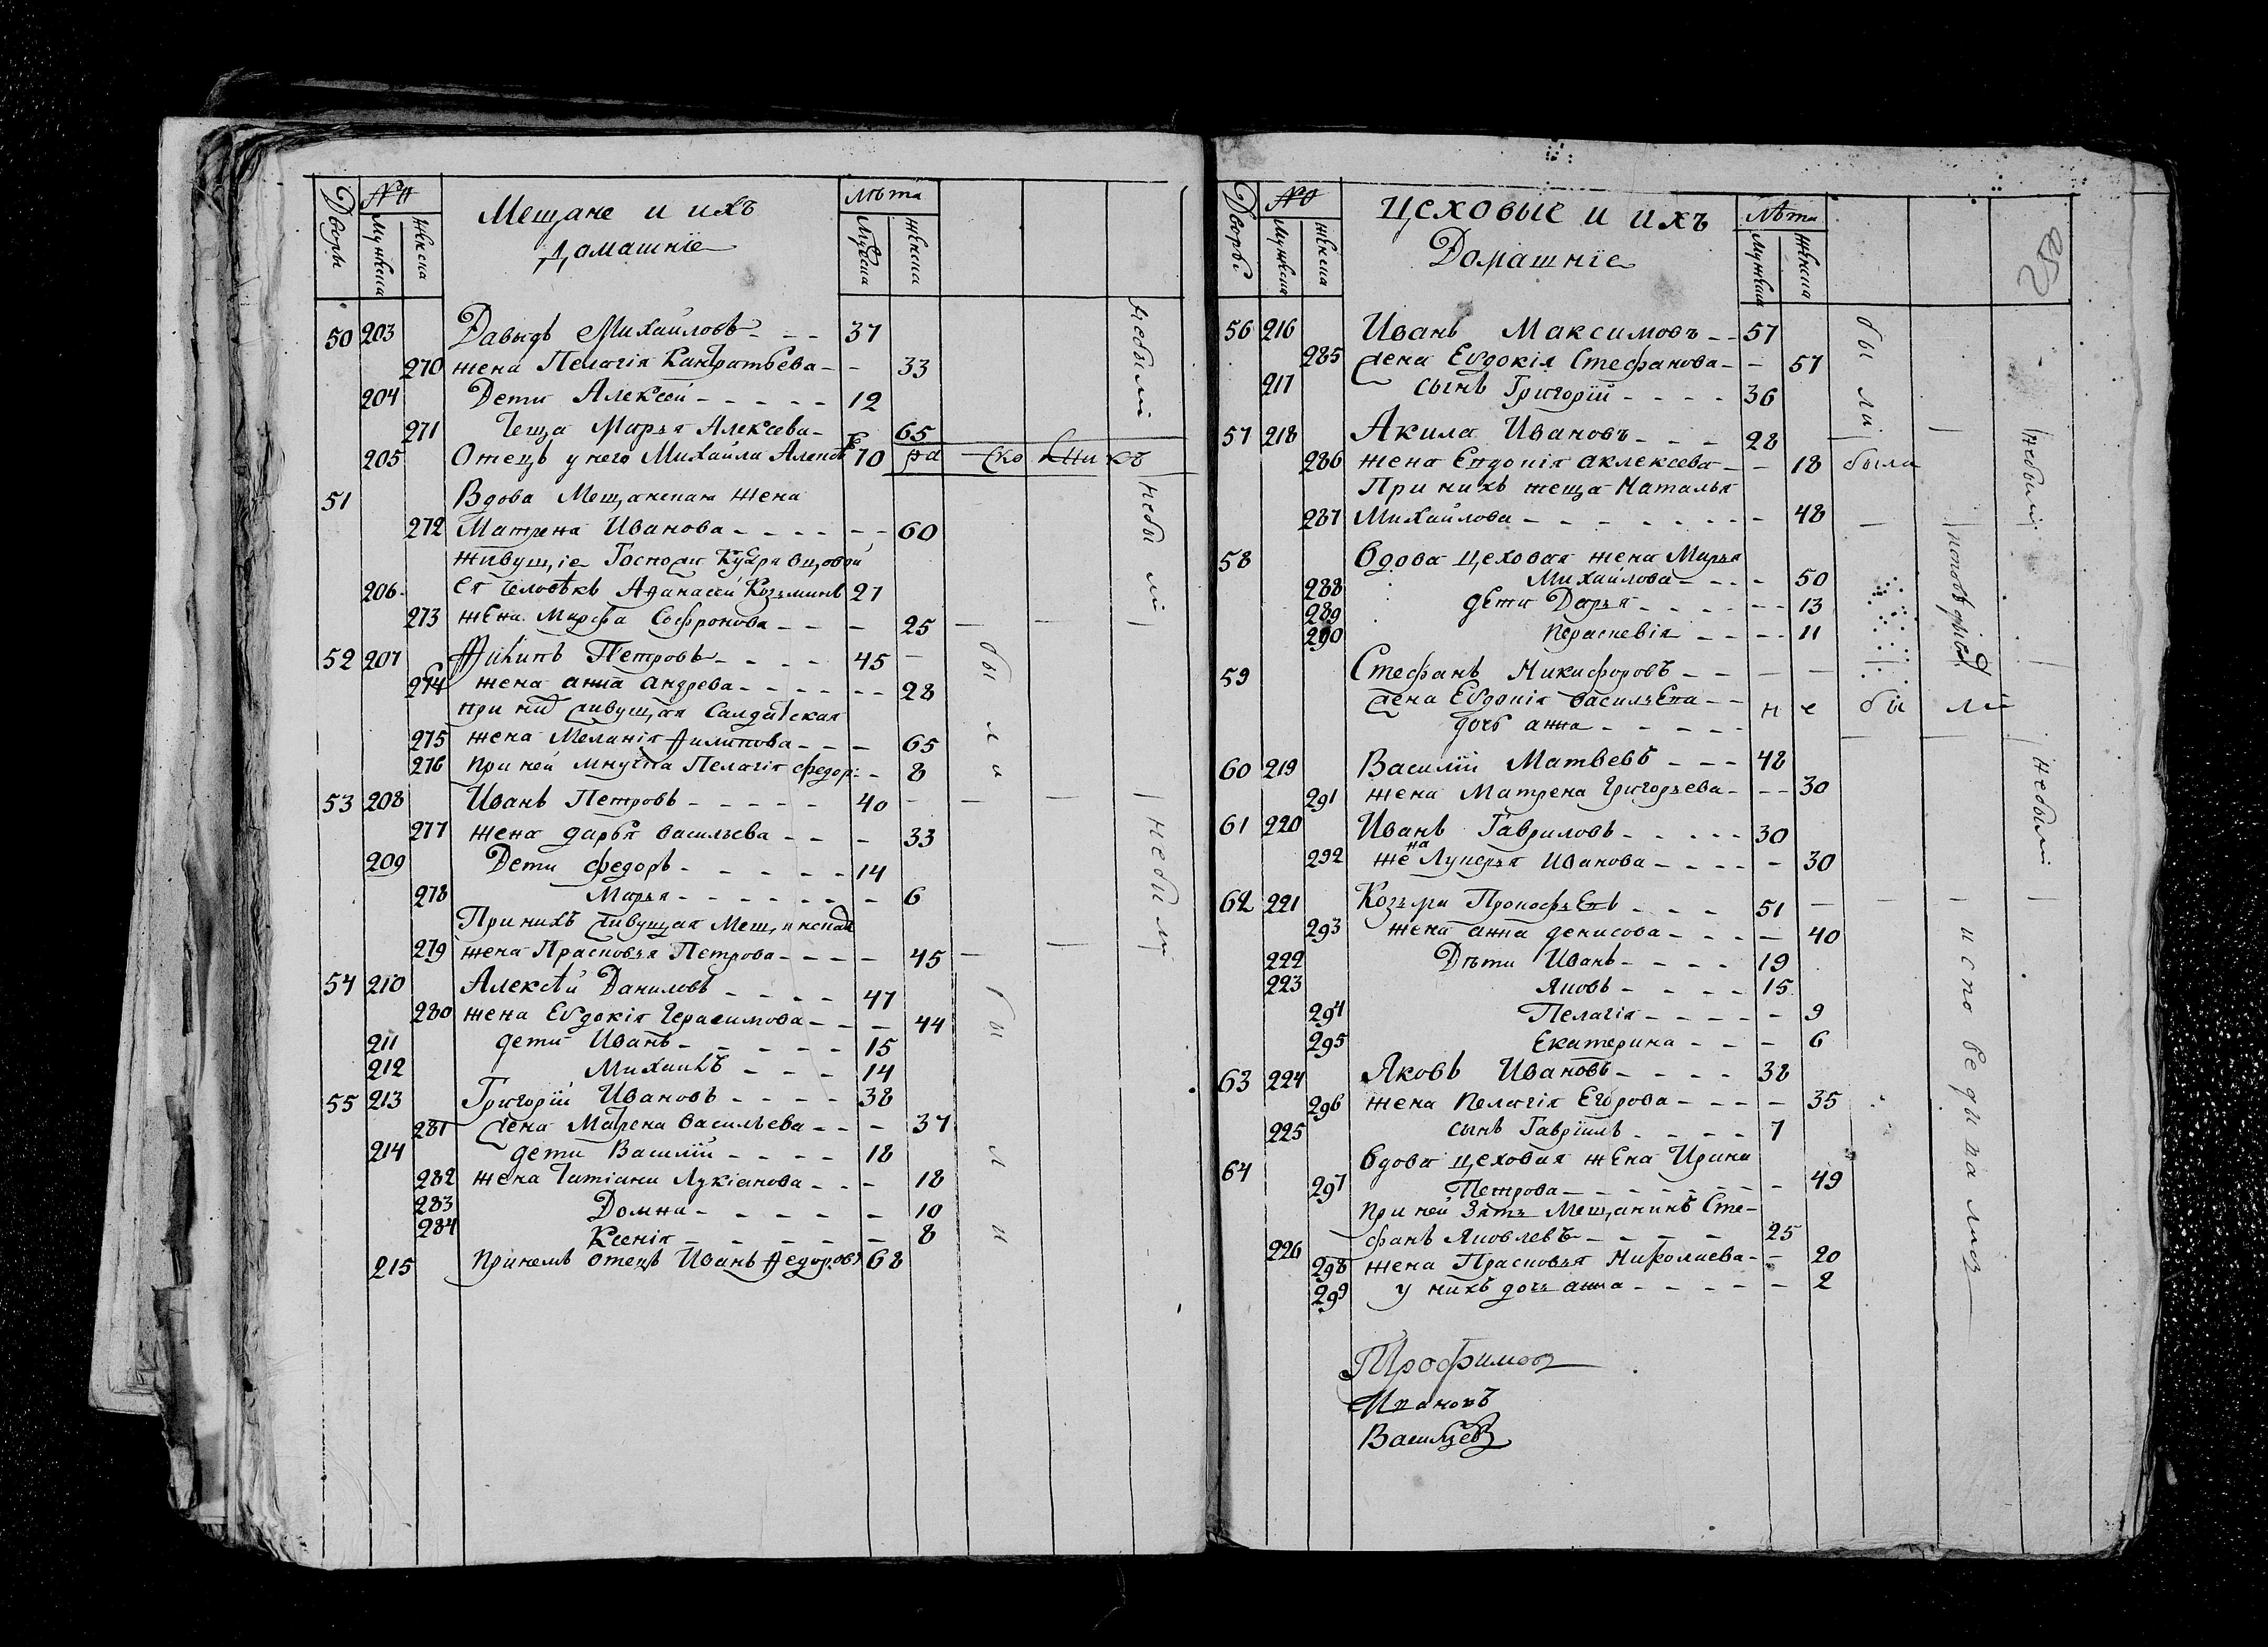 Дворы №№ Мужеска женска Мещане и ихъ лѣта Мужеска женска
домашнїе
50 203 Давыдъ Михайловъ 37
270 жена Пелагія Кандратьева 33
204 Дети Алексѣй 12
271 Теща Марья Алексева 65
205 Отецъ у него Михайла 70 раскольникъ
небыли
51 Вдова Мещанская жена
272 Матрена Иванова 60
живущіе Госпожи
206 Ея человѣкъ Афанасей Козьминъ 27
273 жена Марфа Софронова 25
небыли
52 207 Петровъ 45
274 жена анна андрева 28
при них живущая Салдатская
275 жена Меланія Филипова 65
276 при ней внучка Пелагія федор: 8
были
53 208 Иванъ Петровъ 40
277 жена дарья васильева 33
209 Дети федоръ 14
278 Марья 6
При нихъ живущая Мещанская
279 жена Прасковья Петрова 45
небыли
54 210 Алексѣй Даниловъ 47
280 жена Евдокія Герасимова 44
211 дети Иванъ 15
212 Михаилъ 14
55 213 Григорїй Ивановъ 38
281 жена Матрена васильева 37
214 дети Василїй 18
282 жена Татіана Лукіанова 18
283 Домна 10
284 Ксенія 8
215 При немъ отецъ Иванъ Федоровъ 68
были
Дворы № Мужеска женска цеховые и ихъ лѣта Мужеска женска
Домашнїе
56 216 Иванъ Максимовъ 57
285 жена Евдокія Стефанова 57
217 сынъ Григорїй 36
были
57 218 Акила Ивановъ 28
286 жена Евдокія алексеева 18 была
При нихъ теща Наталья
287 Михайлова 48
небыли
58 вдова цеховая жена Марья
288 Михайлова 50
289 дети Дарья 13
290 Параскевія 11
59 Стефанъ Никифоровъ
жена Евдокія васильева не были
дочь анна
60 219 Василїй Матвѣевъ 48
291 жена Матрена Григорьева 30
61 220 Иванъ Гавриловъ 30
292 жена Лукерья Иванова 30
небыли
62 221 Козьма Прокофьевъ 51
293 жена анна денисова 40
222 Дѣти Иванъ 19
223 Яковъ 15
294 Пелагія 9
295 Екатерина 6
63 224 Яковъ Ивановъ 38
296 жена Пелагія Егорова 35
225 сынъ Гаврїилъ 7
64 вдова цеховая жена Ирина
297 Петрова 49
при ней Зять Мещанинъ Сте-
226 фанъ Яковлевъ 25
298 жена Прасковья Николаева 20
299 у нихъ дочь анна 2
Трофимов
Ивановъ